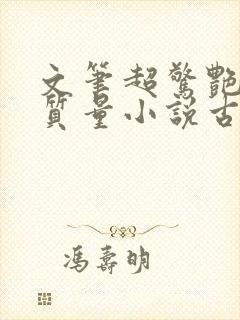 文筆超驚艷
質量小說古
馮壽明